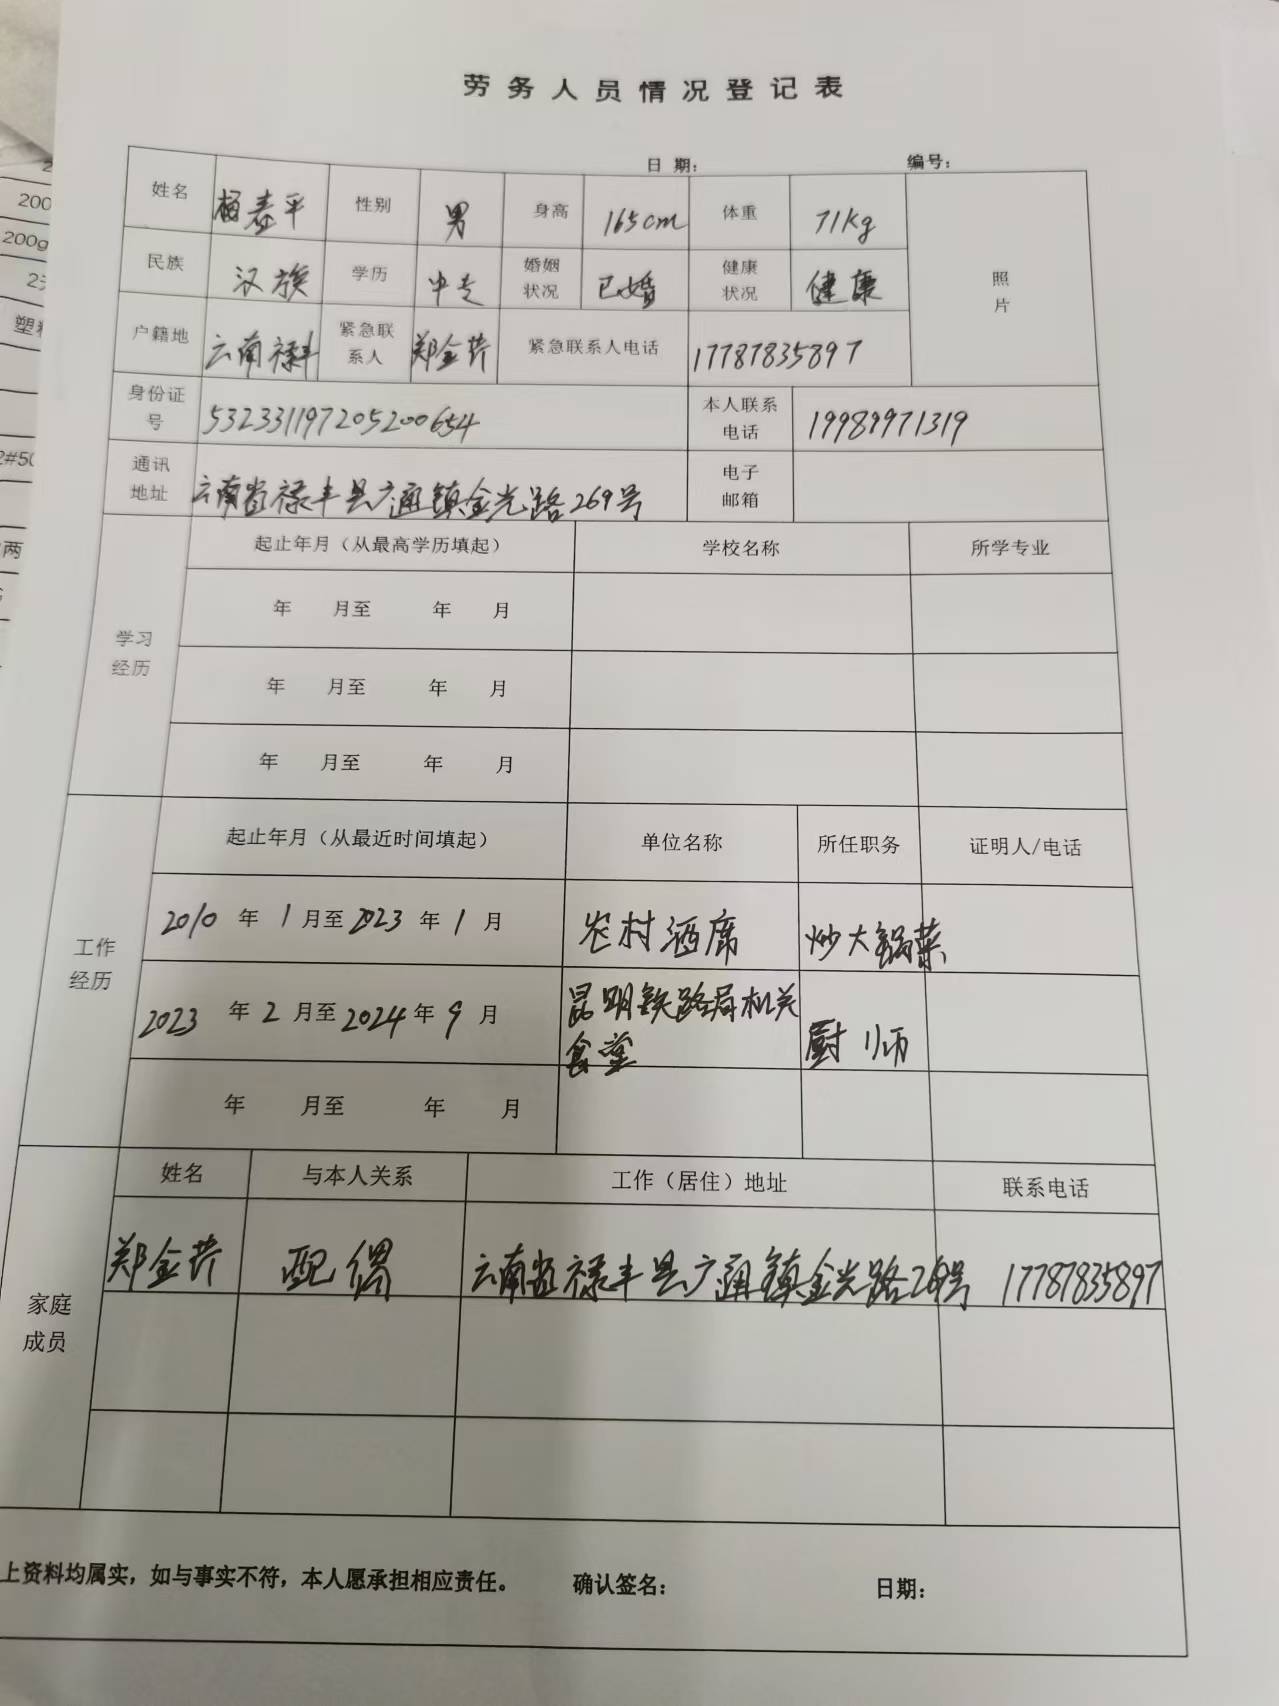 劳务人员情况登记表
日 期： 编号：
姓名 杨泰平 性别 男 身高 165cm 体重 71Kg
民族 汉族 学历 中专 婚姻状况 已婚 健康状况 健康 照片
户籍地 云南禄丰 紧急联系人 郑金芬 紧急联系人电话 17787835897
身份证号 532331197205200654 本人联系电话 19989971319
通讯地址 云南省禄丰县广通镇金光路269号 电子邮箱
起止年月（从最高学历填起） 学校名称 所学专业
学习经历
年 月至 年 月
年 月至 年 月
年 月至 年 月
起止年月（从最近时间填起） 单位名称 所任职务 证明人/电话
工作经历
2010 年 1 月至 2023 年 1 月 农村酒席 炒大锅菜
2023 年 2 月至 2024 年 9 月 昆明铁路局机关食堂 厨师
年 月至 年 月
姓名 与本人关系 工作（居住）地址 联系电话
郑金芬 配偶 云南省禄丰县广通镇金光路269号 17787835897
家庭成员
上资料均属实，如与事实不符，本人愿承担相应责任。 确认签名： 日期：
200
200g
2#50
两